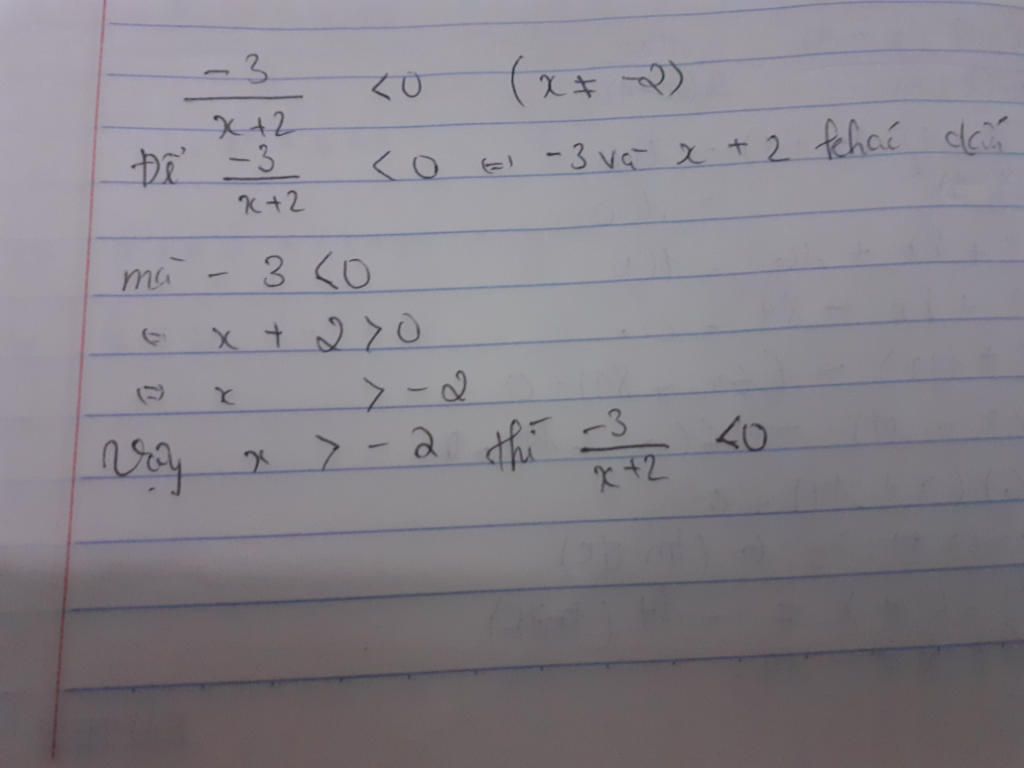 -3/(x+2) < 0 (x ≠ -2)
Để -3/(x+2) < 0 ⇔ -3 và x + 2 khác dấu
mà - 3 < 0
⇔ x + 2 > 0
⇔ x > - 2
Vậy x > - 2 thì -3/(x+2) < 0